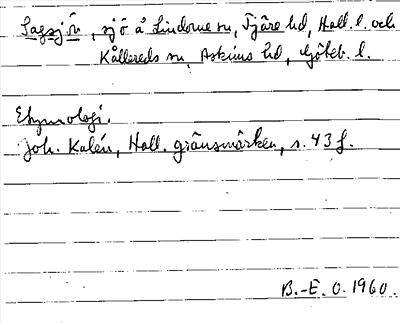 Sagsjön, sjö å Lindome sn, Fjäre hd, Hall. l. och
Kållereds sn, Askims hd, Göteb. l.
Etymologi.
Joh. Kalén, Hall. gränsmärken, s. 43 f.
B.-E. O. 1960.